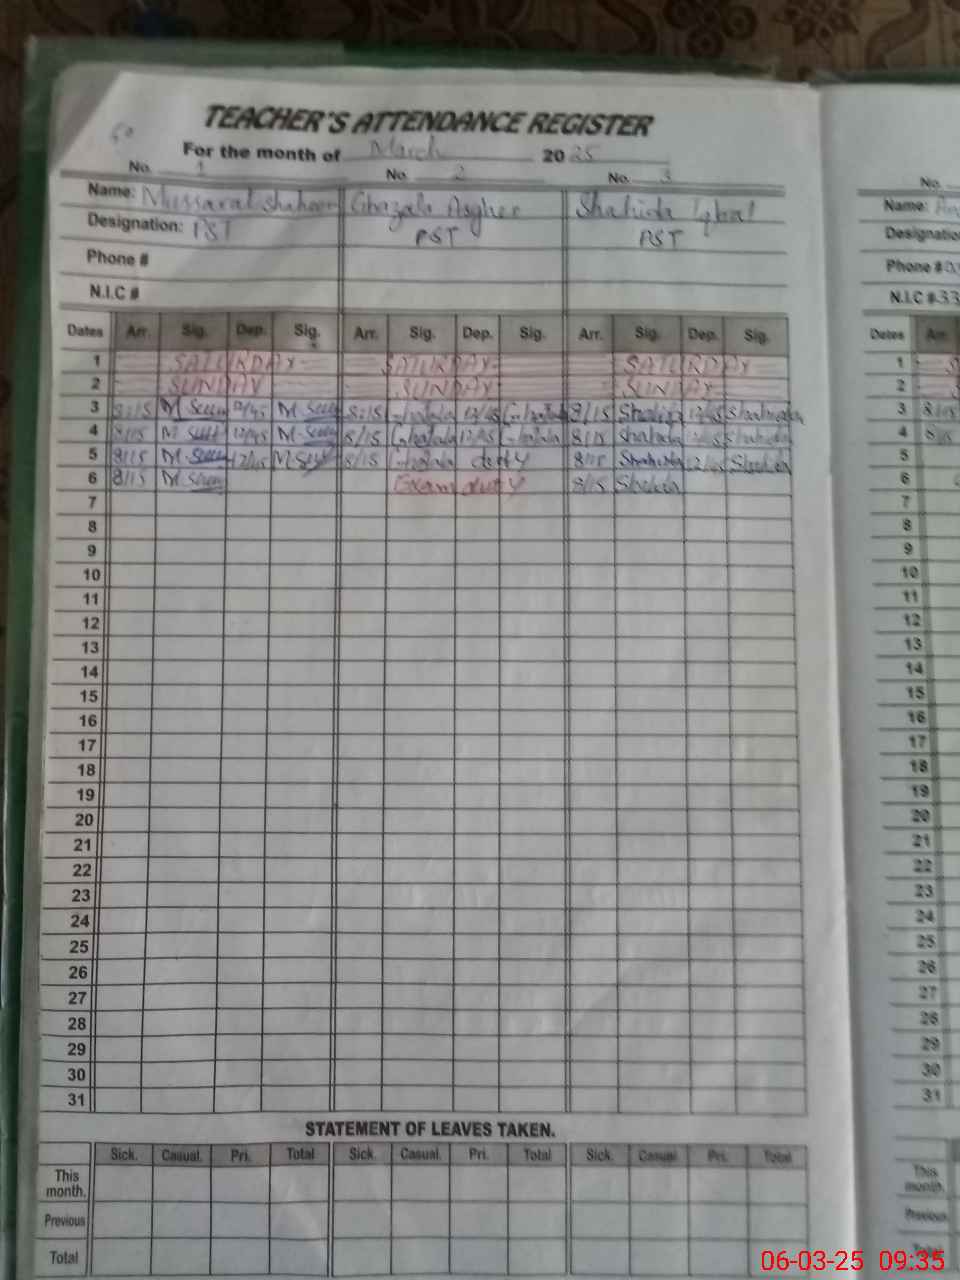 TEACHER'S ATTENDANCE REGISTER
For the month of March 2025
No. 1 No. 2 No. 3 No.
Name: Mussarat Shaheen Ghazala Asgher Shahida Iqbal Name:
Designation: PST PST PST Designatio
Phone # Phone #
N.I.C # N.I.C #33
Dates Arr. Sig. Dep. Sig. Arr. Sig. Dep. Sig. Arr. Sig. Dep. Sig. Dates Arr.
1 SATURDAY SATURDAY SATURDAY 1
2 SUNDAY SUNDAY SUNDAY 2
3 8:15 12/45 8:15 Ghazala 12/45 Ghazala 8/15 Shahida 12/45 Shahida 3 8/15
4 8/15 12/45 8/15 Ghazala 12/45 Ghazala 8/15 Shahida Shahida 4 8/15
5 8/15 12/45 8/15 Ghazala duty 8/15 Shahida 12/45 Shahida 5
6 8/15 Exam duty 8/15 Shahida 6
7 7
8 8
9 9
10 10
11 11
12 12
13 13
14 14
15 15
16 16
17 17
18 18
19 19
20 20
21 21
22 22
23 23
24 24
25 25
26 26
27 27
28 28
29 29
30 30
31 31
STATEMENT OF LEAVES TAKEN.
Sick. Casual. Pri. Total Sick. Casual. Pri. Total Sick. Casual Pri. Total
This month. This month.
Previous Previous
Total Total
06-03-25 09:35